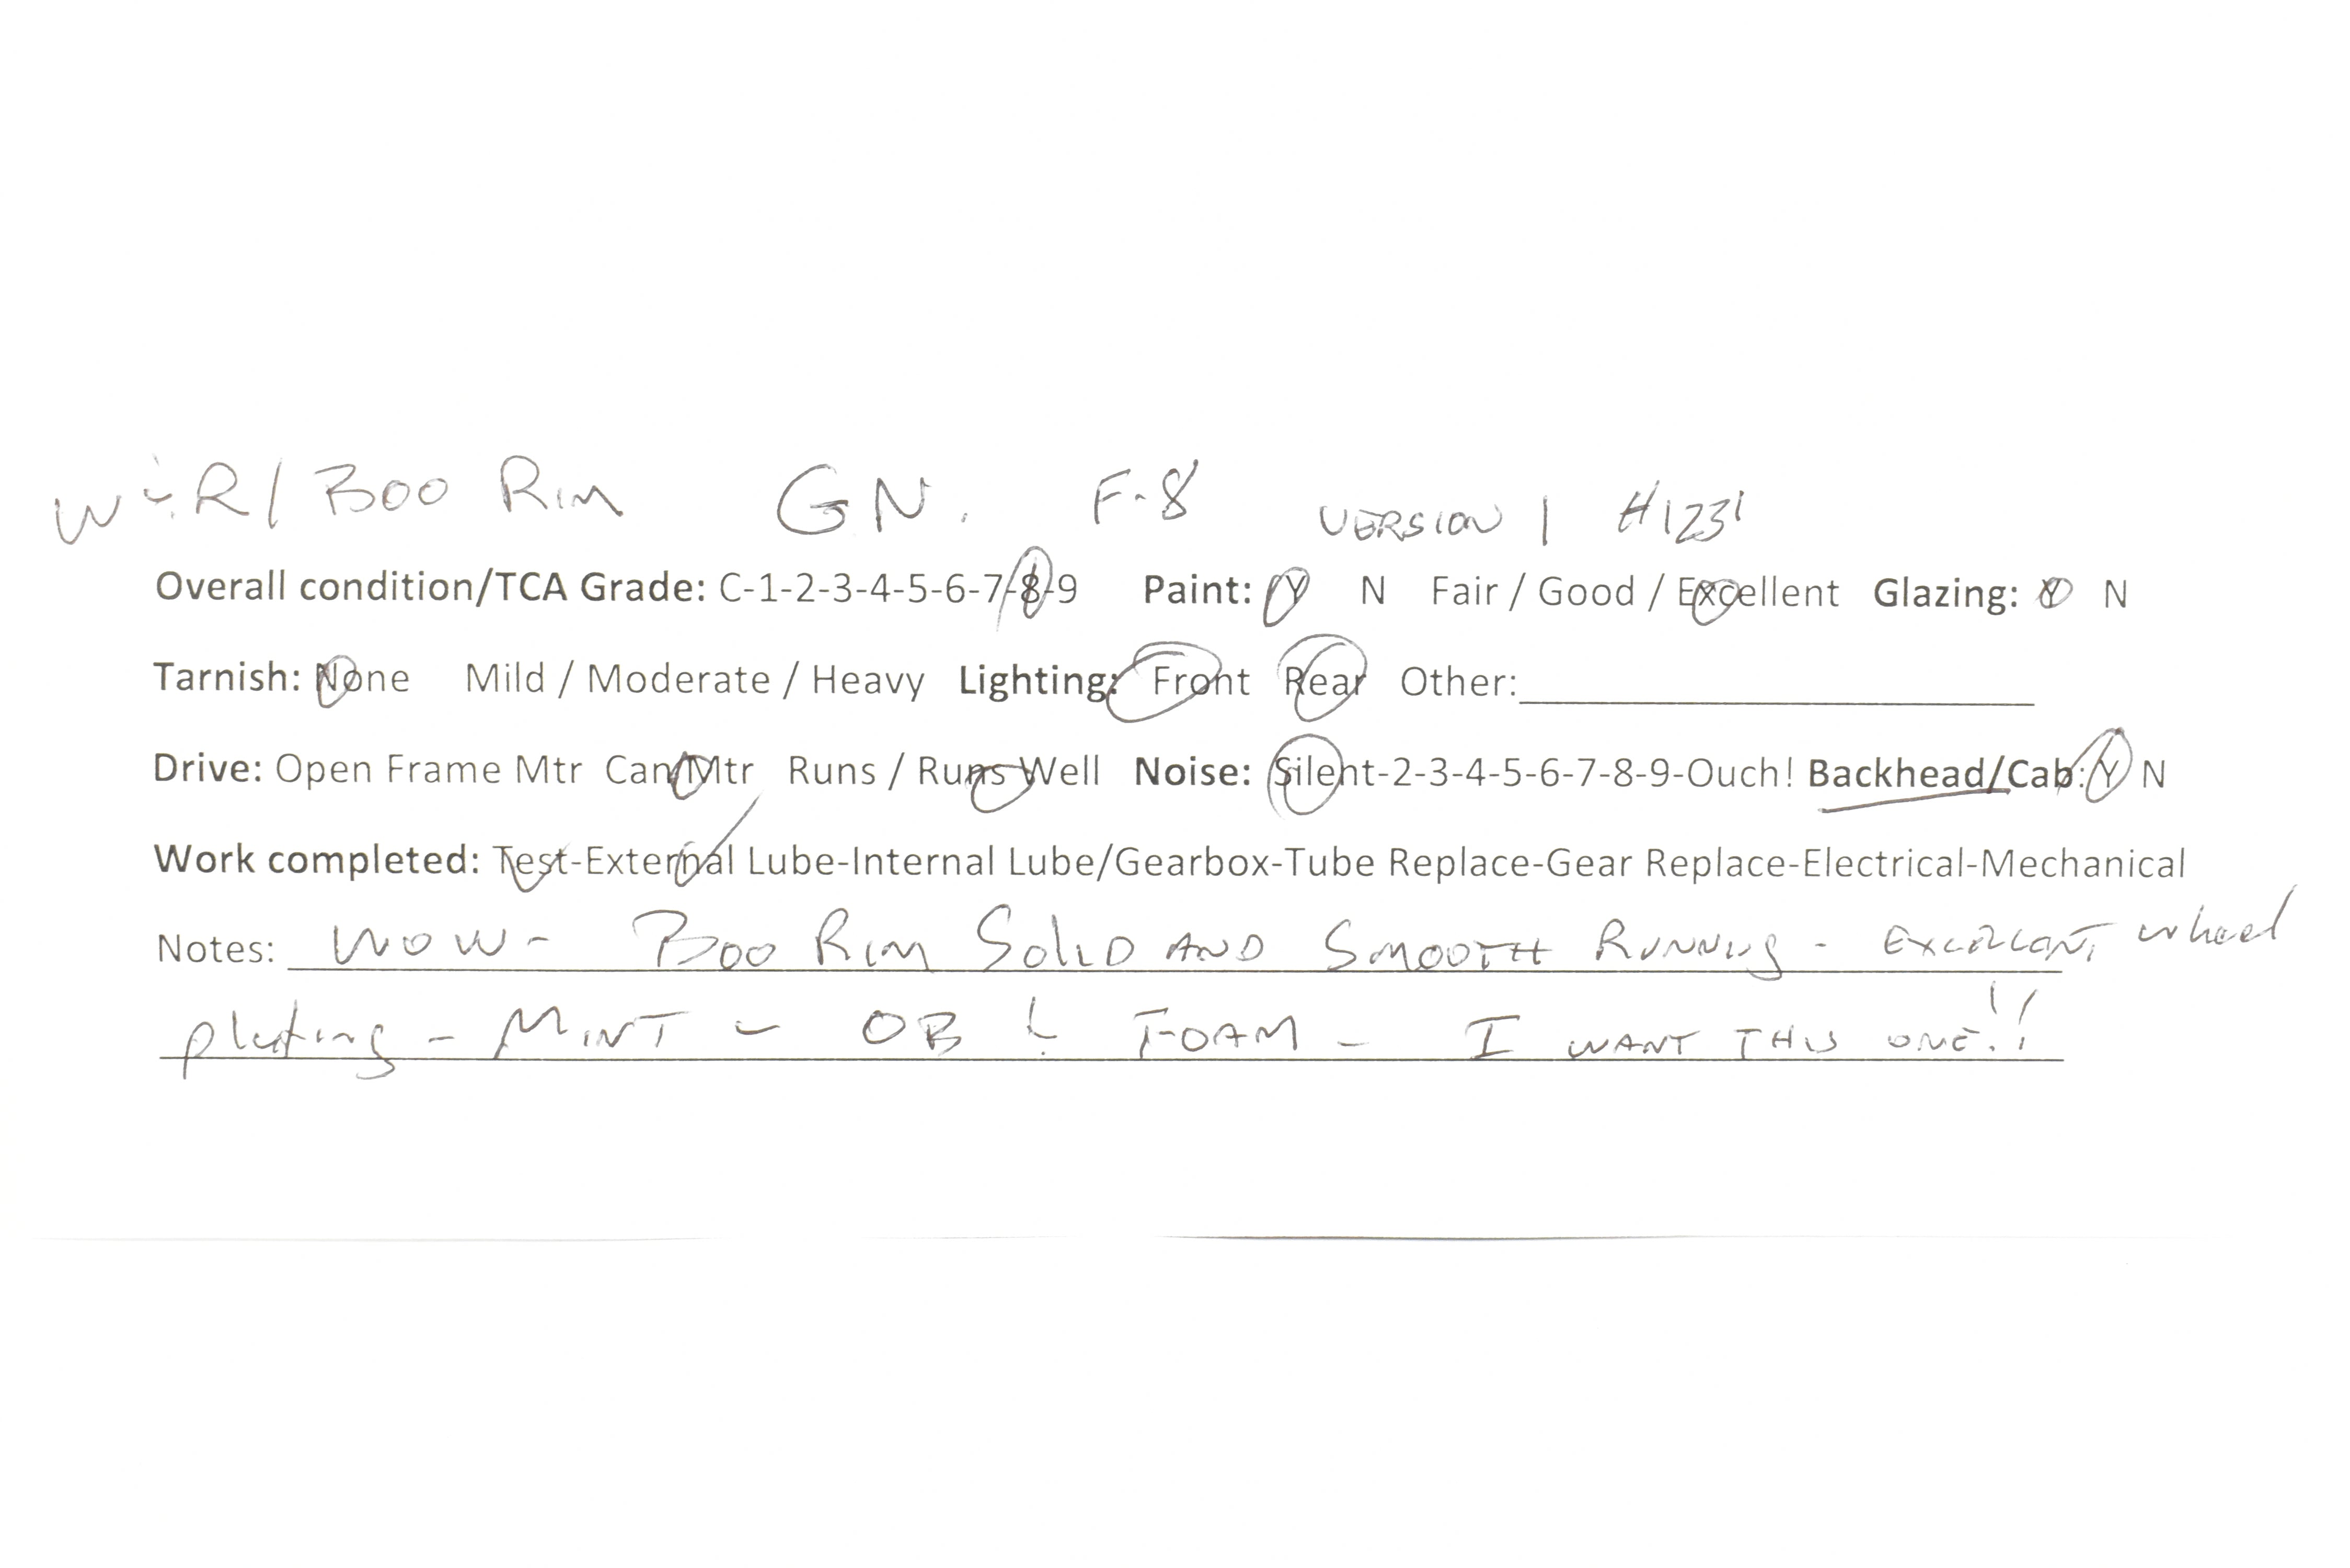 W & R / BOO RIM GN. F-8 VERSION 1 #1231
Overall condition/TCA Grade: C-1-2-3-4-5-6-7-8-9 Paint: Y N Fair / Good / Excellent Glazing: Y N
Tarnish: None Mild / Moderate / Heavy Lighting: Front Rear Other:
Drive: Open Frame Mtr Can Mtr Runs / Runs Well Noise: Silent-2-3-4-5-6-7-8-9-Ouch! Backhead/Cab: Y N
Work completed: Test-External Lube-Internal Lube/Gearbox-Tube Replace-Gear Replace-Electrical-Mechanical
Notes: WOW - BOO RIM SOLID AND SMOOTH RUNNING - EXCELLENT wheel
plating - MINT - OB & FOAM - I WANT THIS ONE!!